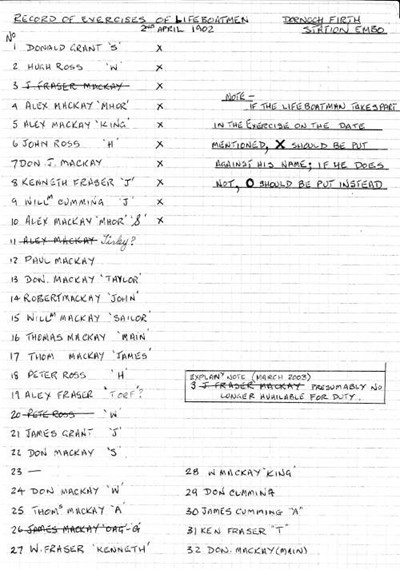 RECORD OF EXERCISES OF LIFEBOATMEN
DORNOCH FIRTH
2nd APRIL 1902
STATION EMBO
No
1 DONALD GRANT 'S' X
2 HUGH ROSS 'W' X
3 J FRASER MACKAY X
4 ALEX MACKAY 'MHOR' X
5 ALEX MACKAY 'KING' X
6 JOHN ROSS 'H' X
7 DON J. MACKAY X
8 KENNETH FRASER 'J' X
9 WILLM CUMMING 'J' X
10 ALEX MACKAY 'MHOR' 'S' X
11 ALEX MACKAY
12 PAUL MACKAY
13 DON. MACKAY 'TAYLOR'
14 ROBERT MACKAY 'JOHN'
15 WILLM MACKAY 'SAILOR'
16 THOMAS MACKAY 'MAIN'
17 THOM MACKAY 'JAMES'
18 PETER ROSS 'H'
19 ALEX FRASER 'TORF'?
20 PETE ROSS 'W'
21 JAMES GRANT 'J'
22 DON MACKAY 'S'
23 —
24 DON MACKAY 'W'
25 THOMS MACKAY 'A'
26 JAMES MACKAY 'OAG-G'
27 W. FRASER 'KENNETH'
NOTE -
IF THE LIFEBOATMAN TAKES PART
IN THE EXERCISE ON THE DATE
MENTIONED, X SHOULD BE PUT
AGAINST HIS NAME; IF HE DOES
NOT, O SHOULD BE PUT INSTEAD
EXPLANY NOTE (MARCH 2003)
3 J FRASER MACKAY PRESUMABLY NO
LONGER AVAILABLE FOR DUTY.
28 W MACKAY 'KING'
29 DON CUMMING
30 JAMES CUMMING "A"
31 KEN FRASER "T"
32 DON. MACKAY (MAIN)